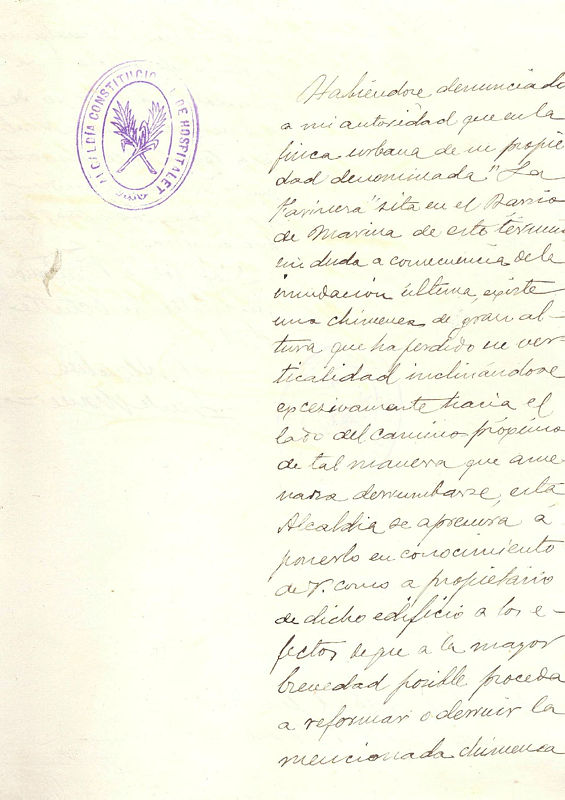 ALCALDÍA CONSTITUCIONAL DE HOSPITALET
Habiendose denunciado
a mi autoridad que en la
finca urbana de su propie
dad denominada "La
Farinera" sita en el Barrio
de Marina de este término
sin duda a consecuencia de la
inundación última, existe
una chimenea de gran al-
tura que ha perdido su ver
ticalidad inclinándose
excesivamente hacia el
lado del camino próximo
de tal manera que ame
naza derrumbarse, esta
Alcaldia se apresura á
ponerlo en conocimiento
de V. como a propietario
de dicho edificio a los e-
fectos de que a la mayor
brevedad posible proceda
a reformar o derruir la
mencionada chimenea